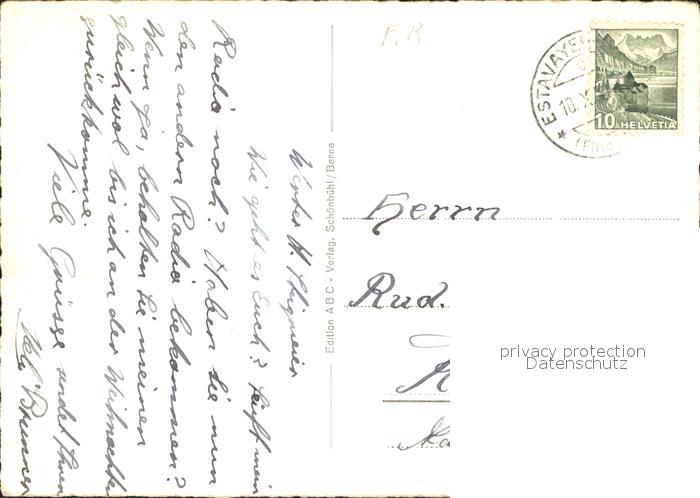 Werter H.
Wie geht es Euch? Läuft mein
Radio noch? Haben Sie nun
den andern Radio bekommen?
Wenn ja, behalten Sie meinen
gleichwol bis ich an der Weihnacht
zurückkomme.
Viele Grüsse sendet Ihnen
Brunner
Edition A B C - Verlag, Schönbühl/Berne
F.R
ESTAVAYE
10. X
(FRIB
10 HELVETIA
Herrn
Rud.
privacy protection
Datenschutz